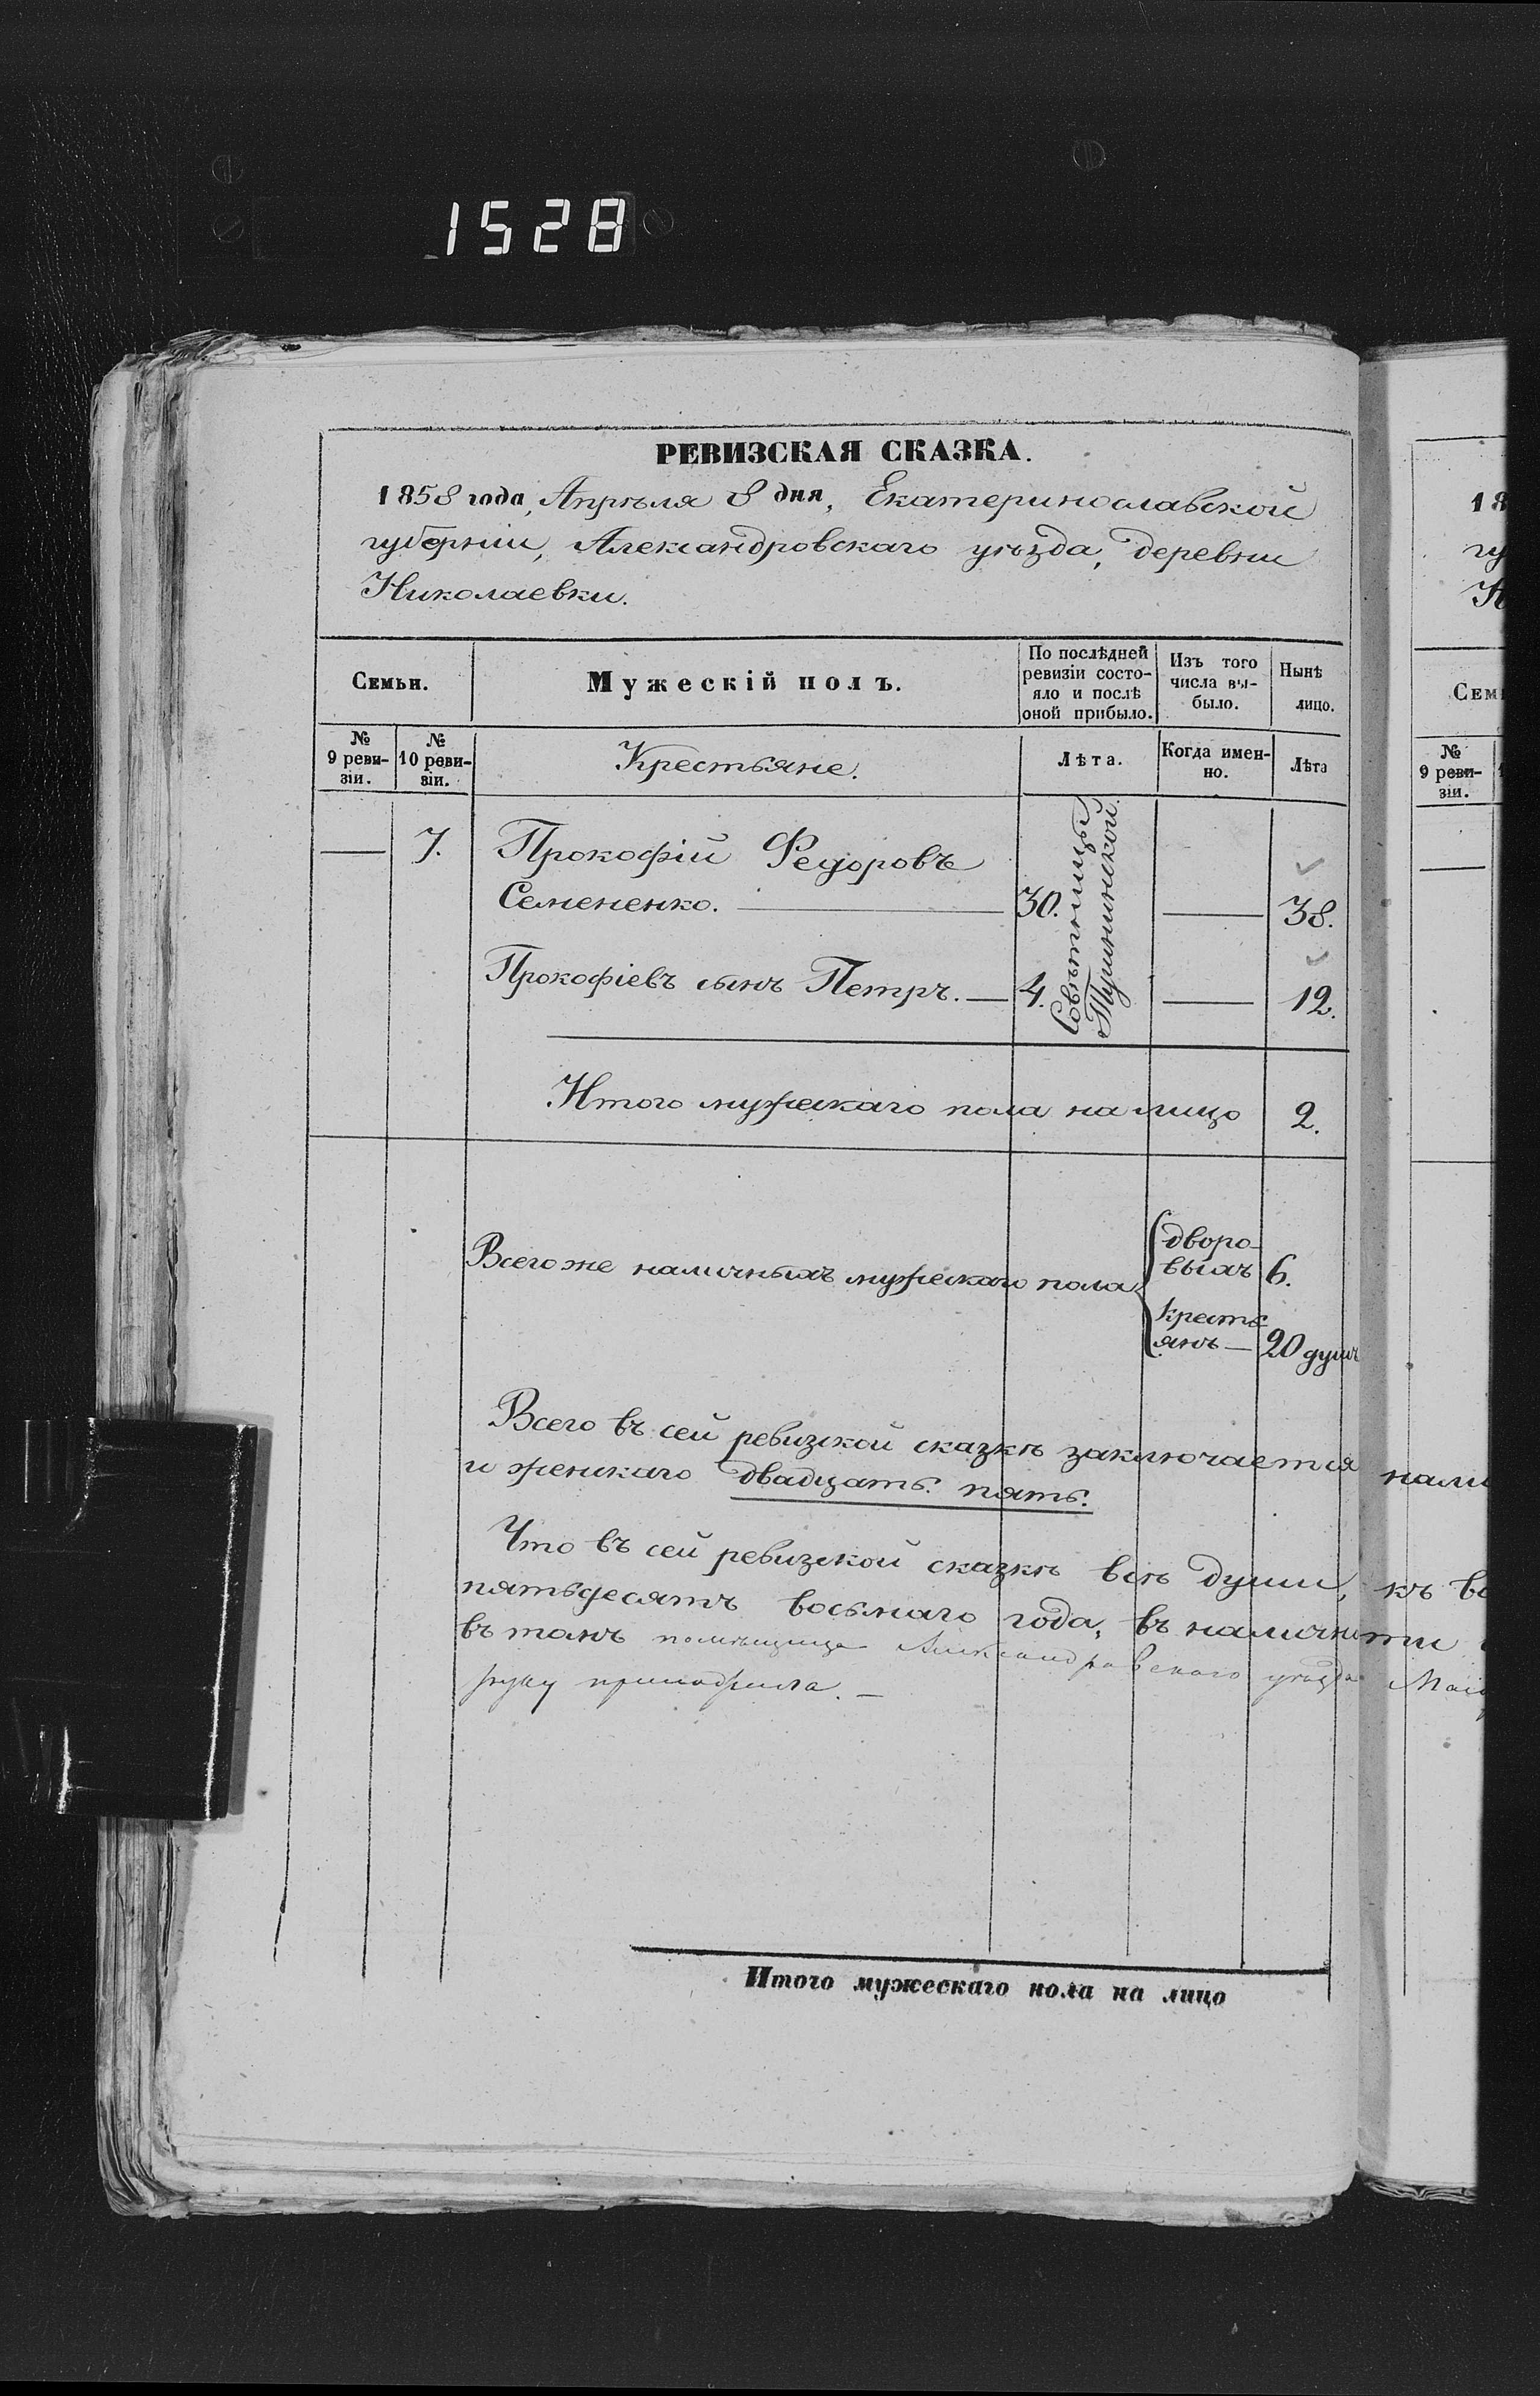 1528
РЕВИЗСКАЯ СКАЗКА.
1858 года, Апрѣля 8 дня, Екатеринославской
губерніи, Александровскаго уѣзда, деревни
Николаевки.
Семьи.
Мужескій полъ.
По послѣдней
ревизіи состо-
яло и послѣ
оной прибыло.
Изъ того
числа вы-
было.
Нынѣ
лицо.
№
9 реви-
зіи.
№
10 реви-
зіи.
Крестьяне.
Лѣта.
Когда имен-
но.
Лѣта
7. Прокофій Федоровъ
Семененко. 30. 38.
Прокофіевъ сынъ Петръ. 4. 12.
Совѣтницы
Итого мужескаго пола на лицо 2.
Всего же наличныхъ мужескаго пола
дворо-
выхъ 6.
кресть
янъ 20 душъ
Всего въ сей ревизской сказкѣ заключается нали
и женскаго двадцать пять.
Что въ сей ревизской сказкѣ всѣ души, къ
пятьдесятъ восьмаго года, въ наличности
въ томъ помѣщица Александровскаго уѣзда
руку приложила.
Итого мужескаго пола на лицо
18
гу
Н
Сем
№
9 реви-
зіи.